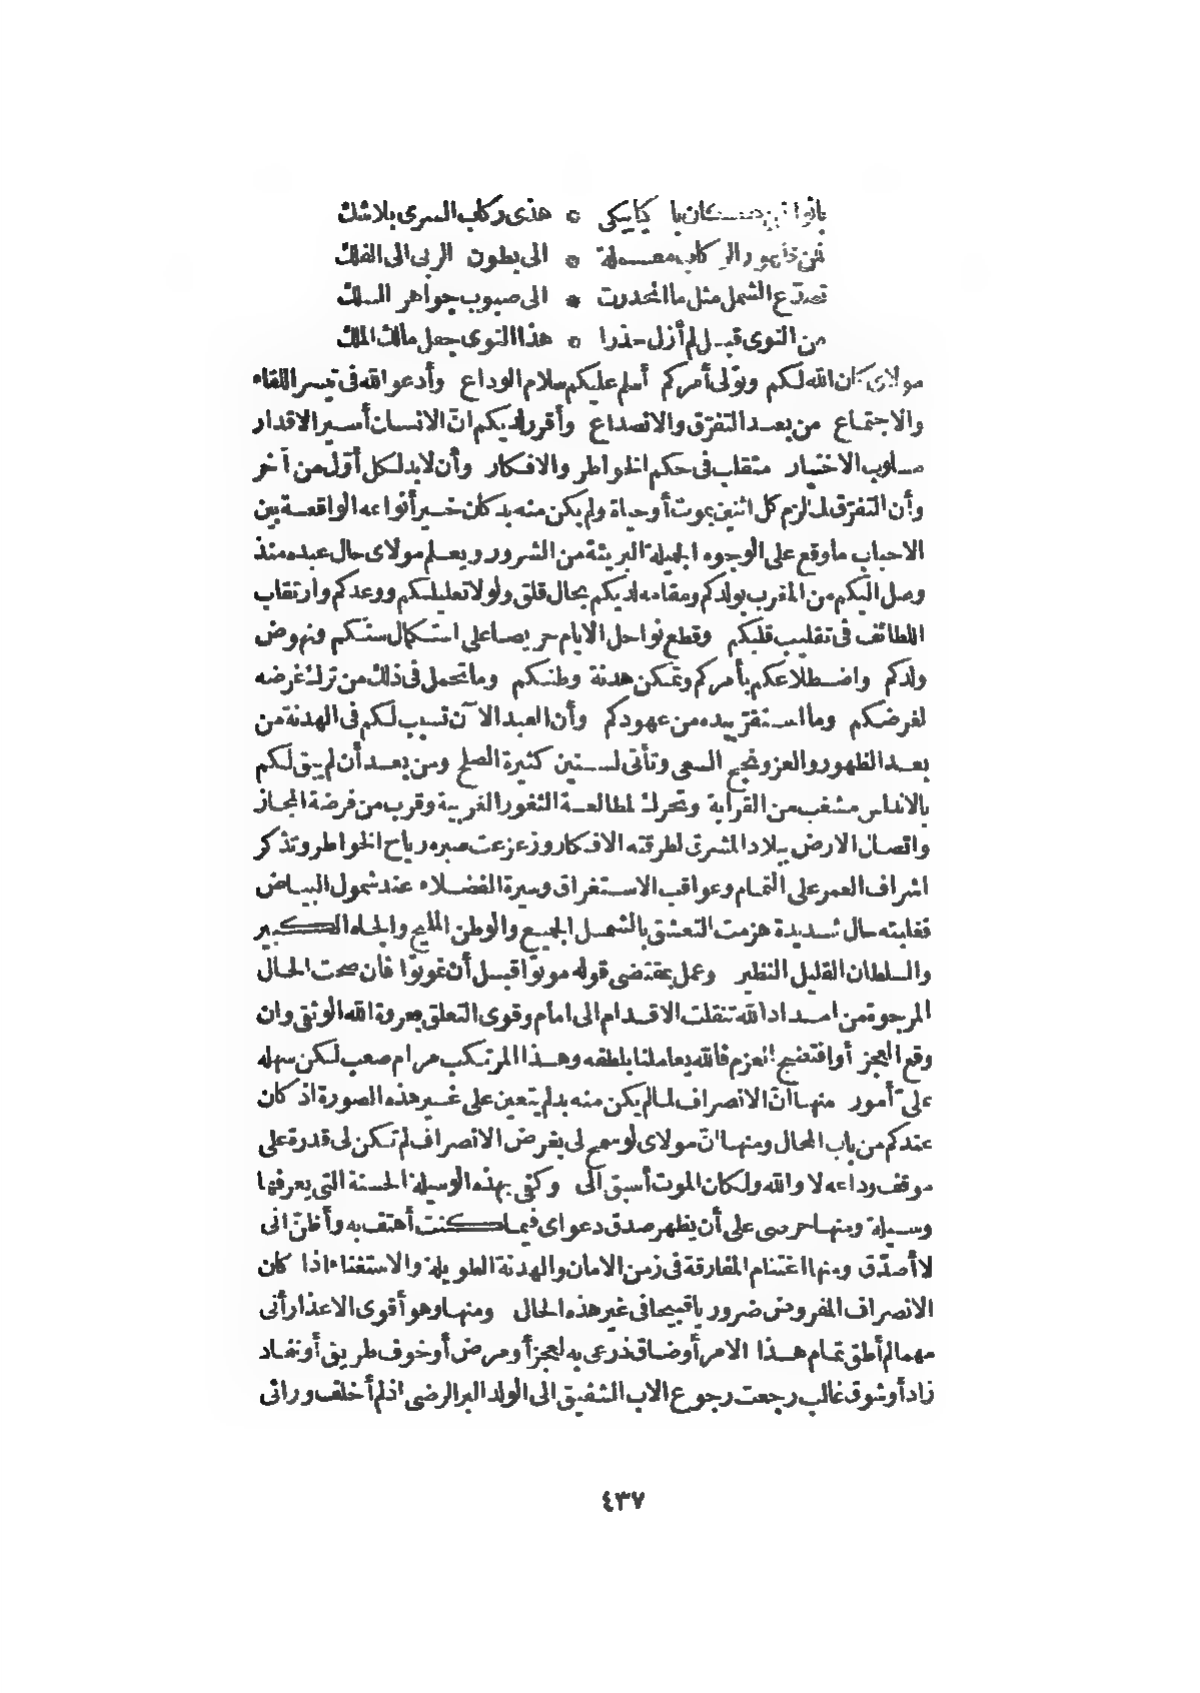 بانوا فمن كان باكيا يبكي * هذي ركاب السرى بلا شك
فمن ظهور الركاب معملة * الى بطون الربى الى الفلك
تصدّع الشمل مثل ما انحدرت * الى صبوب جواهر السلك
من النوى قبل لم أزل حذرا * هذا النوى جل مالك الملك
مولاى كان الله لكم وتولى أمركم أسلم عليكم سلام الوداع وأدعو الله فى تيسر اللقاء
والاجتماع من بعد التفرّق والانصداع وأقرر لديكم انّ الانسان أسير الاقدار
مسلوب الاختيار متقلب فى حكم الخواطر والافكار وأن لا بد لكل أوّل من آخر
وأن التفرّق لما لزم كل اثنين بموت أو حياة ولم يكن منه بد كان خير أنواعه الواقعة بين
الاحباب ما وقع على الوجوه الجميلة البريئة من الشرور ويعلم مولاى حال عبده منذ
وصل اليكم من المغرب بولدكم ومقامه لديكم بحال قلق ولولا تعليلكم ووعدكم وارتقاب
اللطائف فى تقليب قلبكم وقطع نواحل الايام حريصا على استكمال سنّكم ونهوض
ولدكم واضطلاعكم بأمركم وتمكن هدنة وطنكم وما تحمل فى ذلك من ترك غرضه
لغرضكم وما استقرّ بيده من عهودكم وأن العبد الآن تسبب لكم فى الهدنة من
بعد الظهور والعز ونجح السعى وتأتى لسنين كثيرة الصلح ومن بعد أن لم يبق لكم
بالاندلس مشغب من القرابة وتحرك لمطالعة الثغور الغربية وقرب من فرضة المجاز
واتصال الارض ببلاد المشرق لطرقته الافكار وزعزعت صبره رياح الخواطر وتذكر
اشراف العمر على التمام وعواقب الاستغراق وسيرة الفضلاء عند شمول البياض
فغلبته حال شديدة هزمت التعشق بالشمل الجميع والوطن المليح والجاه الكبير
والسلطان القليل النظير وعمل بمقتضى قوله موتوا قبل أن تموتوا فان صحت الحال
المرجوة من امداد الله تنقلت الاقدام الى امام وقوى التعلق بعروة الله الوثقى وان
وقع العجز أو افتضح العزم فالله يعاملنا بلطفه وهذا المرتكب مرام صعب لكن سهله
علىّ أمور منها انّ الانصراف لما لم يكن منه بد لم يتعين على غير هذه الصورة اذ كان
عندكم من باب المحال ومنها انّ مولاى لو سمح لى بغرض الانصراف لم تكن لى قدرة على
موقف وداعه لا والله ولكان الموت أسبق الىّ وكفى بهذه الوسيلة الحسنة التى يعرفها
وسيلة ومنها حرصى على أن يظهر صدق دعواى فيما كنت أهتف به وأظنّ انى
لا أصدّق ومنها اغتنام المفارقة فى زمن الامان والهدنة الطويلة والاستغناء اذا كان
الانصراف المفروض ضروريا قبيحا فى غير هذه الحال ومنها وهو أقوى الاعذار أنى
مهما لم أطق تمام هذا الامر أو ضاق ذرعى به لعجز أو مرض أو خوف طريق أو نفاد
زاد أو شوق غالب رجعت رجوع الاب الشفيق الى الولد البر الرضى اذ لم أخلف ورائى
٤٣٧